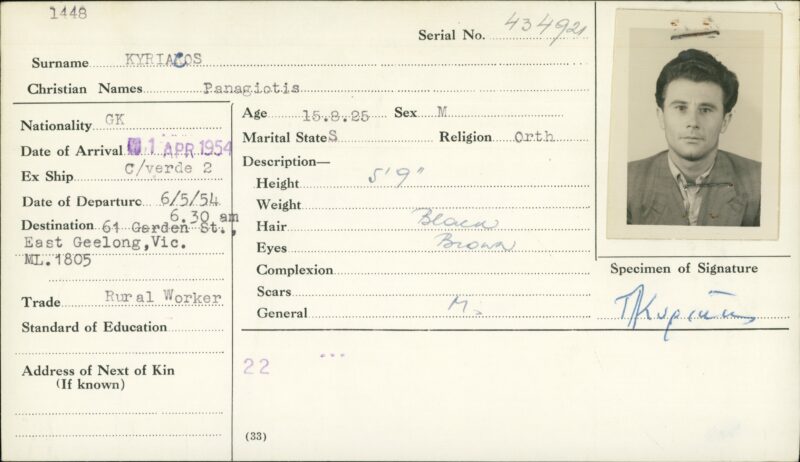 1448
Serial No. 434921
Surname KYRIACOS
Christian Names Panagiotis
Nationality GK
Date of Arrival 1 APR 1954
Ex Ship C/verde 2
Date of Departure 6/5/54
6.30 am
Destination 61 Garden St.,
East Geelong,Vic.
ML.1805
Trade Rural Worker
Standard of Education
Address of Next of Kin
(If known)
Age 15.8.25 Sex M
Marital State S Religion Orth
Description—
Height 5'9"
Weight
Hair Black
Eyes Brown
Complexion
Scars
General
22
(33)
Specimen of Signature